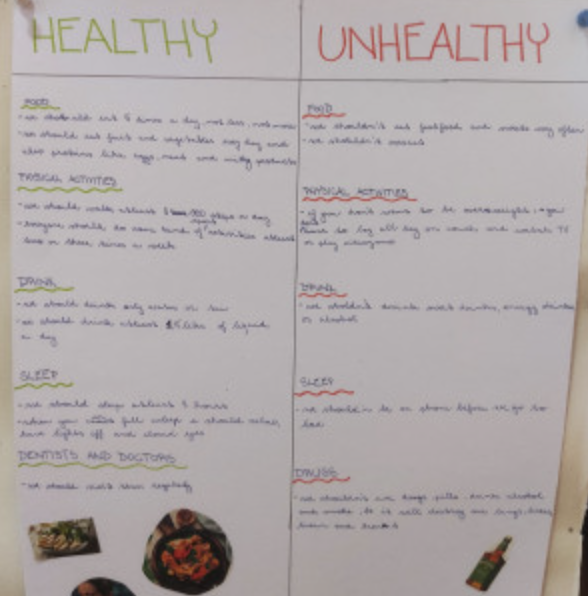 HEALTHY
FOOD
- we should eat 5 times a day, not less, not more
- we should eat fruit and vegetables every day and
also proteins like eggs, meat and milky products
PHYSICAL ACTIVITIES
- we should walk atleast steps a day
- everyone should do some kind of activities atleast
two or three times a week
DRINK
- we should drink only water or tea
- we should drink atleast litre of liquid
a day
SLEEP
- we should sleep atleast hours
- when you fall asleep u should relax,
have lights off and closed eyes
DENTISTS AND DOCTORS
- we should visit them regulary
UNHEALTHY
FOOD
- we shouldn't eat fastfood and sweets very often
- we shouldn't overeat
PHYSICAL ACTIVITIES
- if you don't want to be overweight, you
have to lay all day on couch and watch TV
or play videogames
DRINK
- we shouldn't drink sweet drinks, energy drinks
or alcohol
SLEEP
- we shouldn't be on phone before we go to
bed
DRUGS
- we shouldn't use drugs, pills, drink alcohol
and smoke, to it will destroy our lungs, liver,
brain and